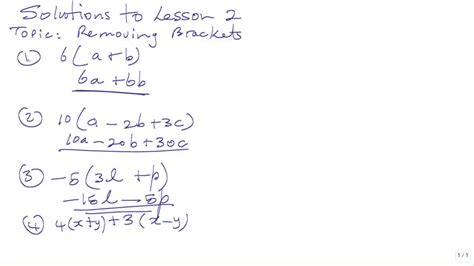 Solutions to Lesson 2
Topic: Removing Brackets
① 6(a+b)
6a+6b
② 10(a-2b+3c)
10a-20b+30c
③ -5(3l+p)
-15l-5p
④ 4(x+y)+3(x-y)
1/1